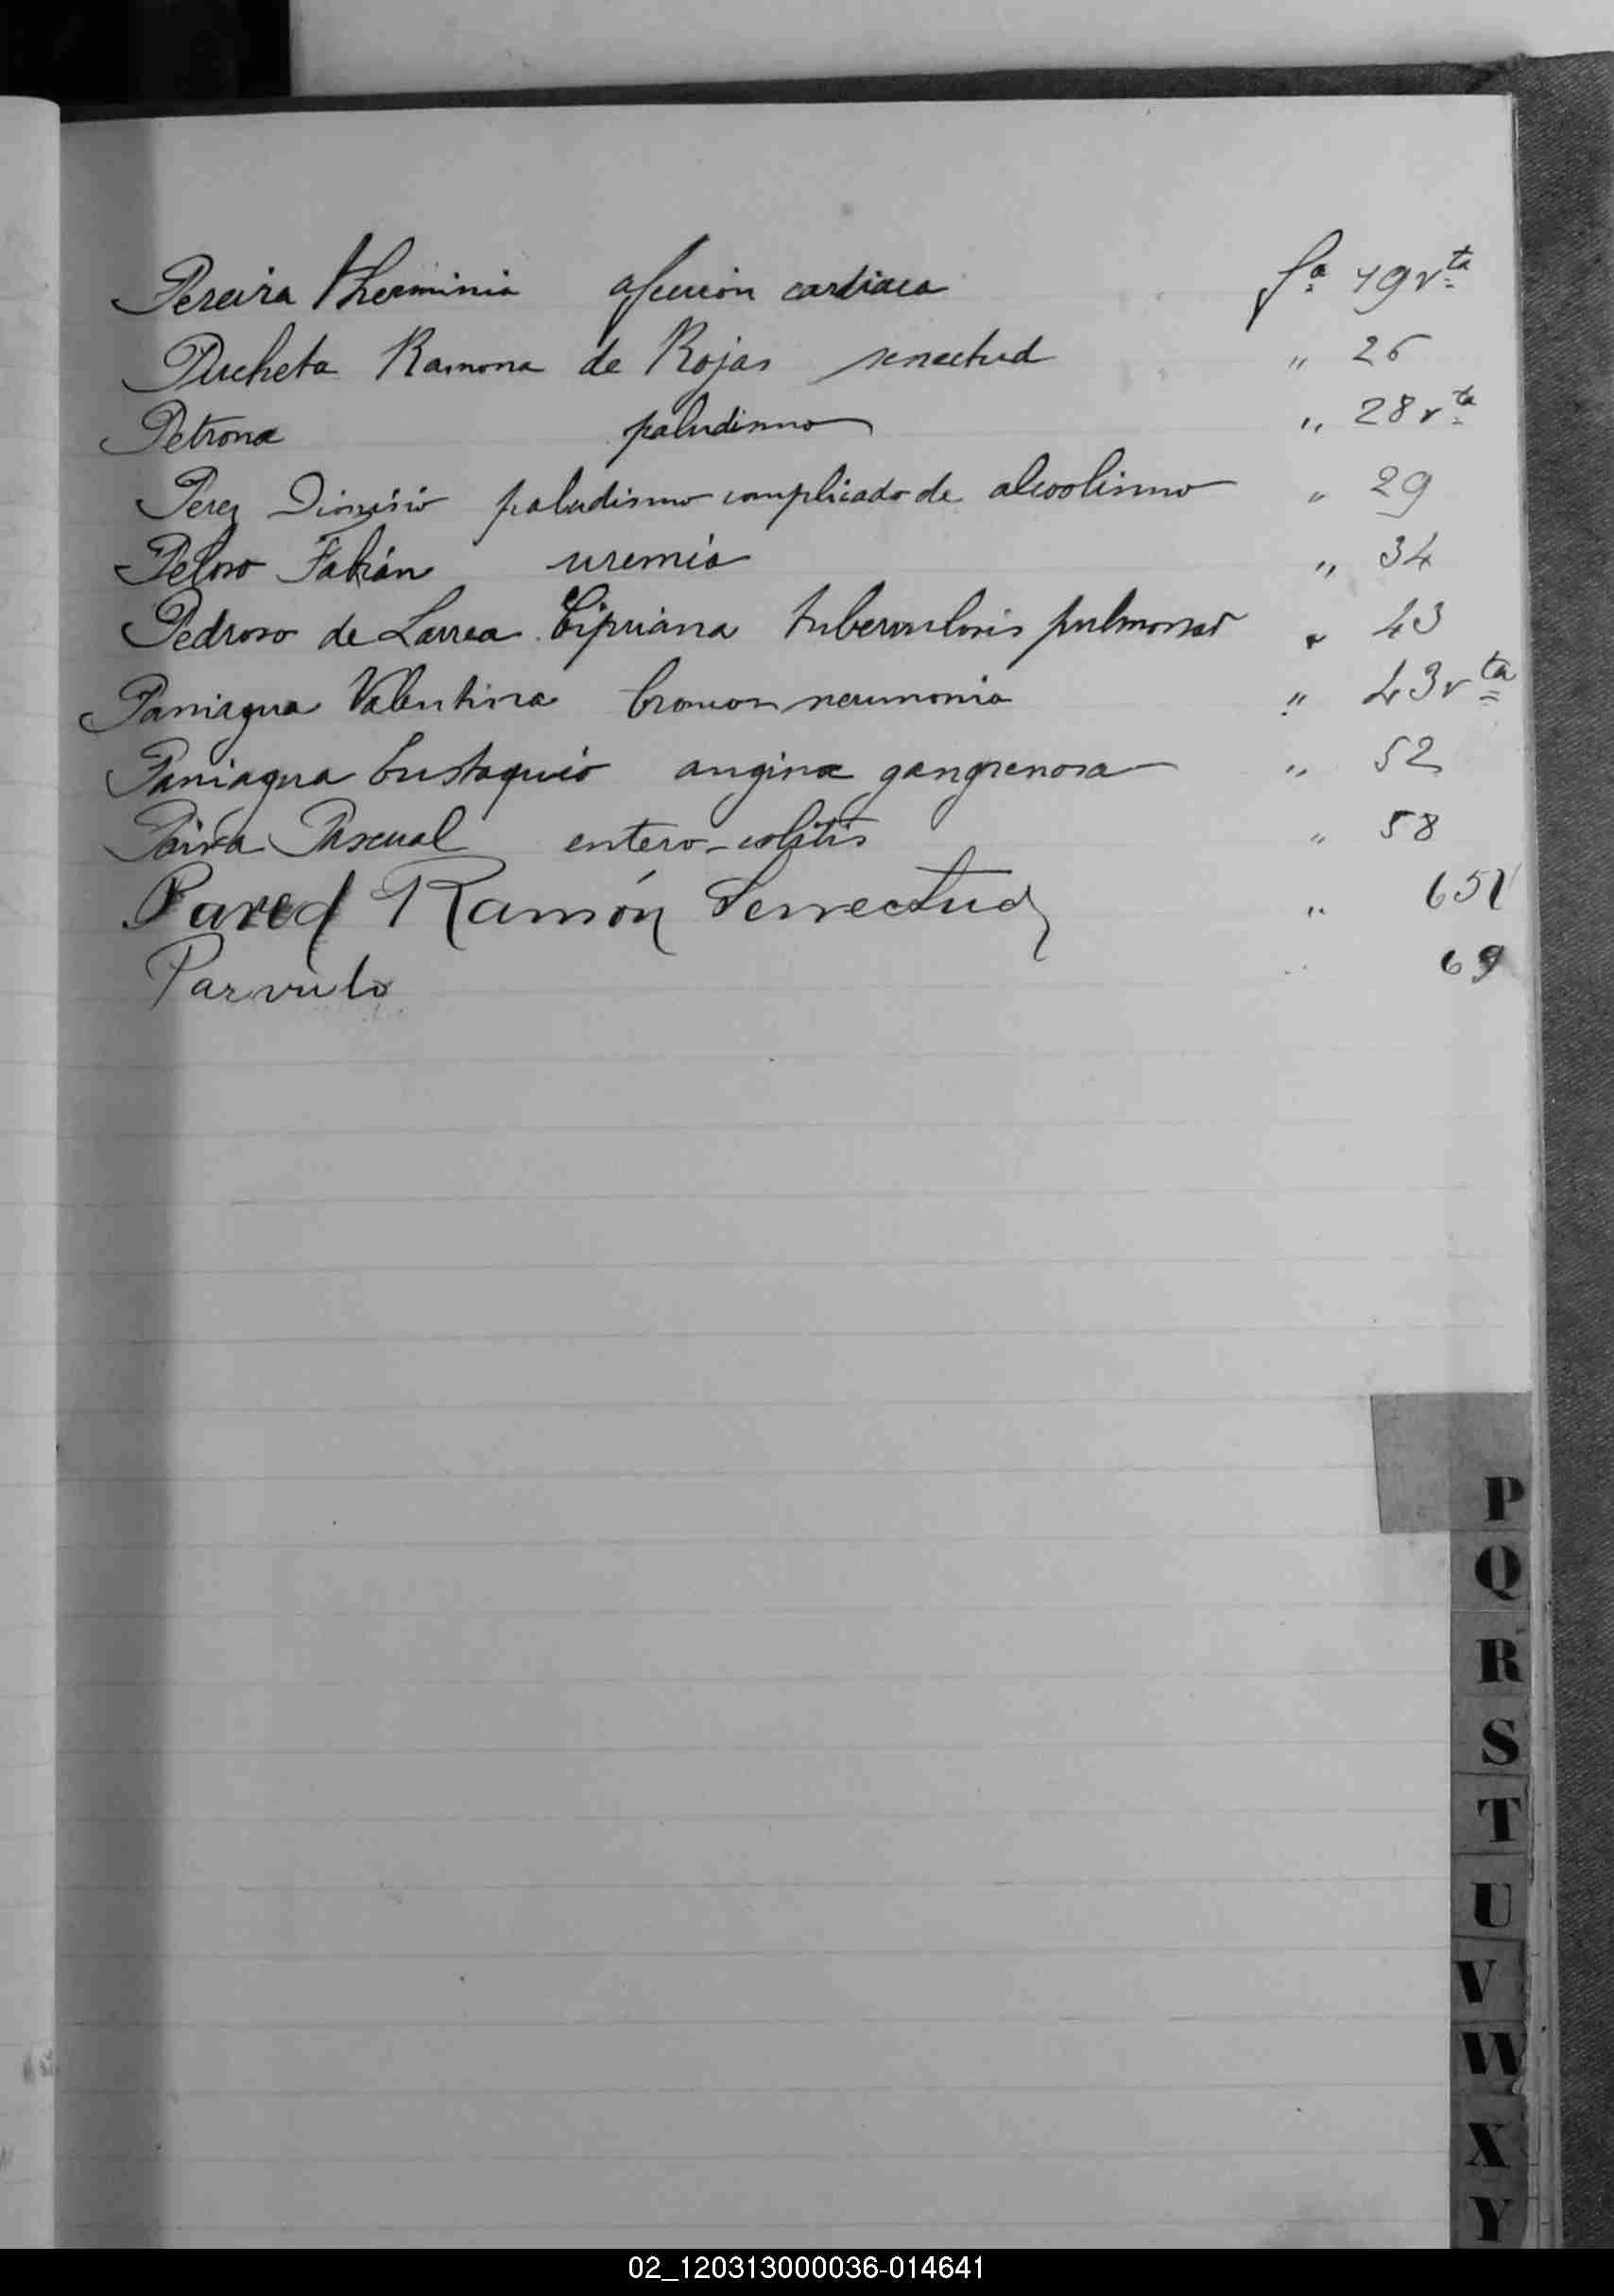 Pereira Herminia afeccion cardiaca fª 19 vta
Pucheta Ramona de Rojas senectud " 26
Petrona paludismo " 28 vta
Perez Dionisio paludismo complicado de alcoolismo " 29
Peloso Fabián uremia " 34
Pedroso de Larrea Cipriana tuberculosis pulmonar " 43
Paniagua Valentina bronconneumonia " 43 vta
Paniagua Eustaquio angina gangrenosa " 52
Paiva Pascual entero-colitis " 58
Pared Ramón Senectud " 65V
Parvulo " 69
P
Q
R
S
T
U
V
W
X
Y
02_120313000036-014641